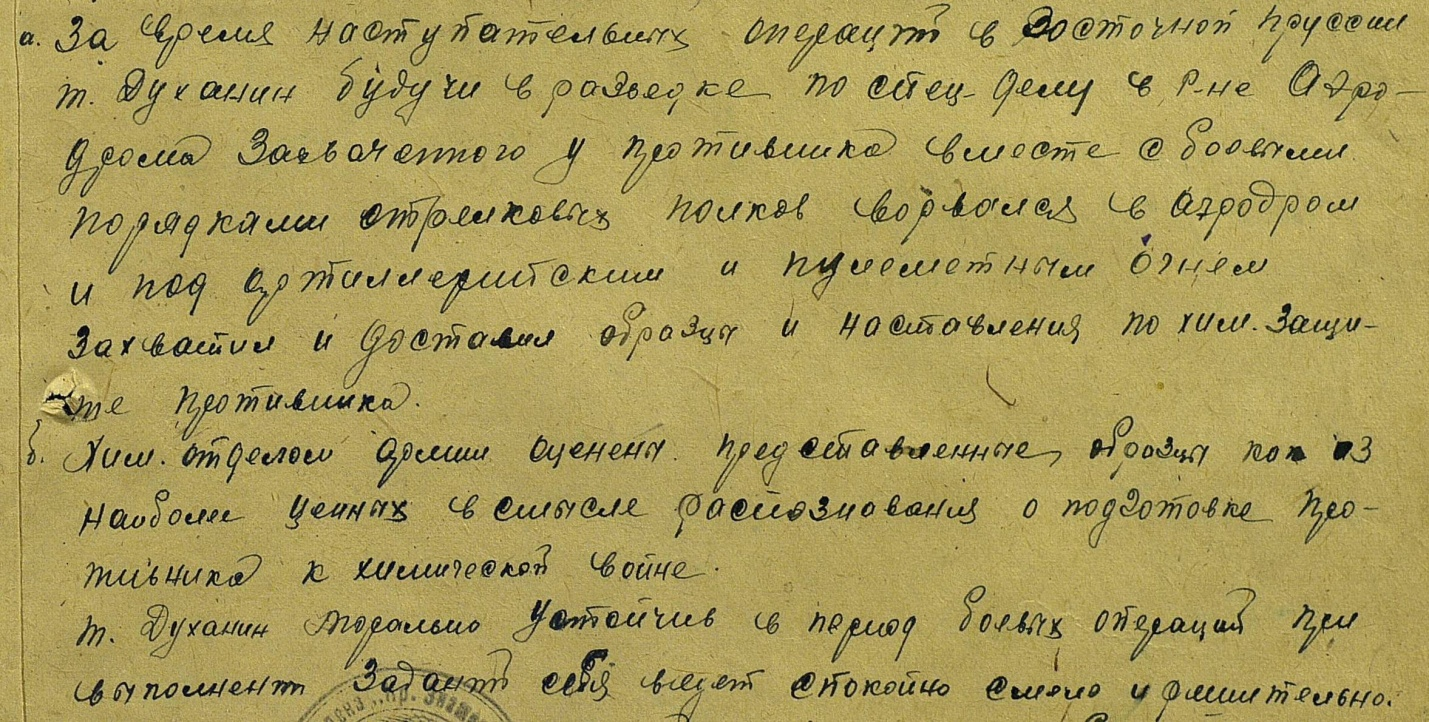 а. За время наступательных операций в Восточной Пруссии
т. Духанин будучи в разведке по спец-делу в р-не Аэро-
дрома Захваченного у противника вместе с боевыми
порядками стрелковых полков ворвался в аэродром
и под артиллерийским и пулеметным огнем
Захватил и доставил образцы и наставления по хим. Защи-
те противника.
б. Хим. отделом армии оценены представленные образцы как из
наиболее ценных в смысле распознавания о подготовке про-
тивника к химической войне.
т. Духанин Морально Устойчив в период боевых операций при
выполнении Заданий себя ведет спокойно смело и решительно.